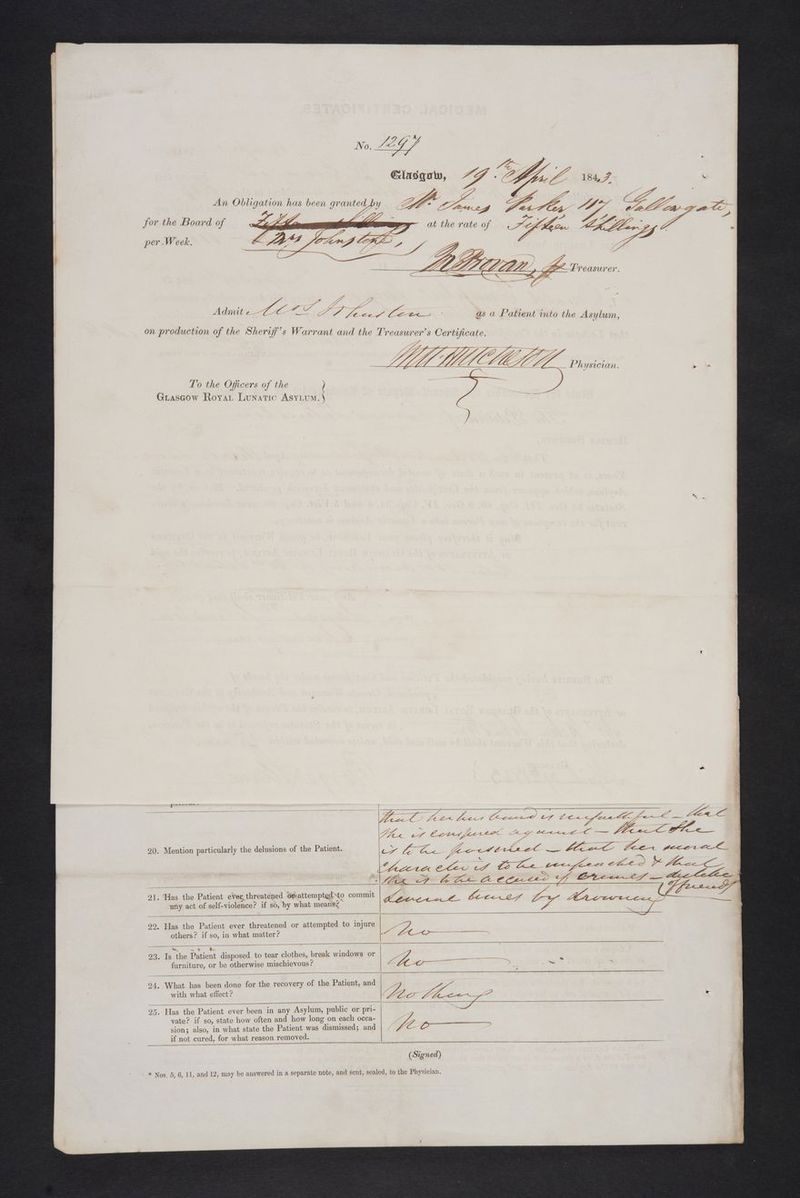 No. 1297
Glasgow, 19th April 1843.
An Obligation has been granted by Mr James Parker 117 Gallowgate,
for the Board of at the rate of Fifteen Shillings
per Week. Mrs Johnston,
Treasurer.
Admit Mrs Johnston as a Patient into the Asylum,
on production of the Sheriff's Warrant and the Treasurer's Certificate.
Physician.
To the Officers of the
Glasgow Royal Lunatic Asylum.
that her husband is unfaithful – that
she is conspired against – that she
20. Mention particularly the delusions of the Patient. is to be poisoned – that her moral
character is to be impeached & that
she is to be accused of crimes – dislike
of friends
21. Has the Patient ever threatened or attempted to commit
any act of self-violence? if so, by what means? Several times by drowning
22. Has the Patient ever threatened or attempted to injure
others? if so, in what matter? No
23. Is the Patient disposed to tear clothes, break windows or
furniture, or be otherwise mischievous? No
24. What has been done for the recovery of the Patient, and
with what effect? Nothing
25. Has the Patient ever been in any Asylum, public or pri-
vate? if so, state how often and how long on each occa-
sion; also, in what state the Patient was dismissed; and No
if not cured, for what reason removed.
(Signed)
* Nos. 5, 6, 11, and 12, may be answered in a separate note, and sent, sealed, to the Physician.